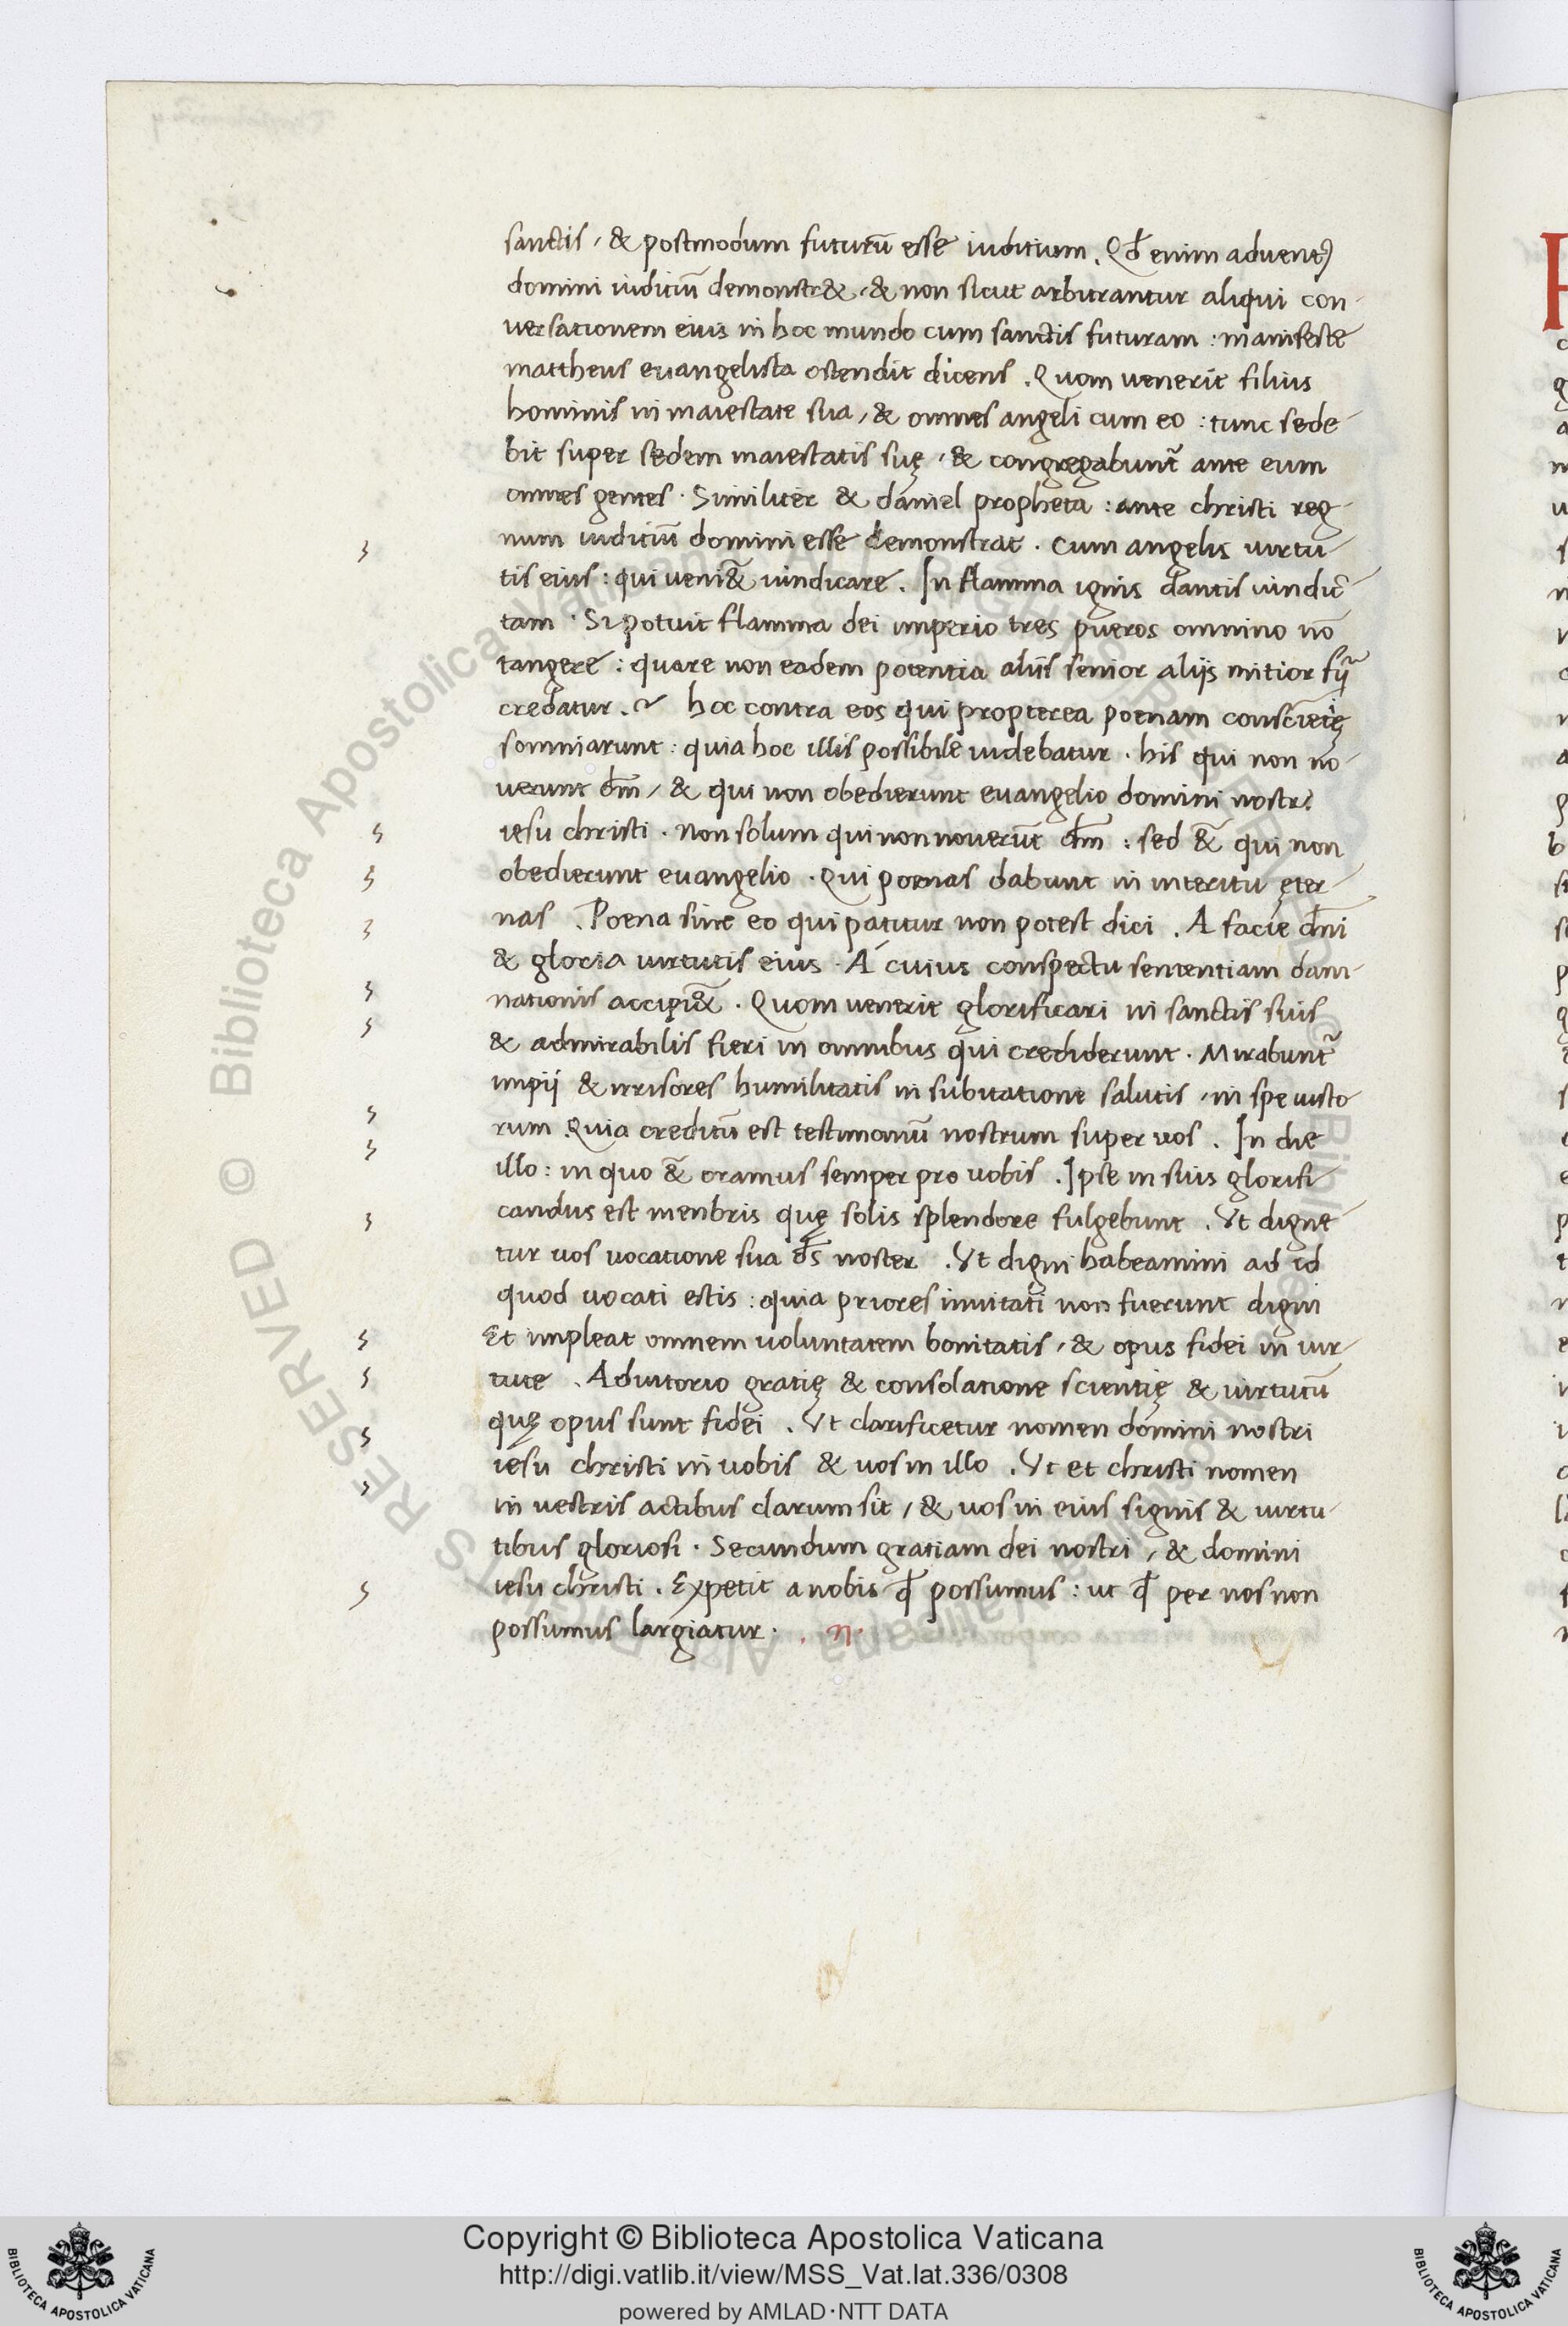 sanctis, & postmodum futurū esse iuditium. Qd̄ enim aduentꝰ
domini iudiciū demonstr&, & non sicut arbitrantur aliqui con-
uersationem eius in hoc mundo cum sanctis futuram: manifeste
mattheus euangelista ostendit dicens. Quom uenerit filius
hominis in maiestate sua, & omnes angeli cum eo: tunc sede-
bit super sedem maiestatis suę, & congregabunt᷑ ante eum
omnes gentes. Similiter & daniel propheta: ante christi reg-
num iudiciū domini esse demonstrat. Cum angelis uirtu-
tis eius: qui ueni&̄ uindicare. In flamma ignis dantis uindic̄-
tam. Si potuit flamma dei imperio tres pueros omnino nō
tangere: quare non eadem potentia aliis senior alijs mitior
credatur. hoc contra eos qui propterea poenam consciētię
somniarunt: quia hoc illis possibile uidebatur. his qui non no-
uerunt dm̄, & qui non obedierunt euangelio domini nostri
iesu christi. Non solum qui non nouerūt dm̄: sed &̄ qui non
obedierunt euangelio. Qui poenas dabunt in interitu ęter-
nas. Poena sine eo qui patitur non potest dici. A facie dn̄i
& gloria uirtutis eius. A cuius conspectu sententiam dam-
nationis accipi&̄. Quom uenerit glorificari in sanctis suis
& admirabilis fieri in omnibus qui crediderunt. Mirabunt᷑
impij & irrisores humilitatis in subitatione salutis, in spe iusto
rum. Quia creditū est testimoniū nostrum super uos. In die
illo: in quo &̄ oramus semper pro uobis. Ipse in suis glorifi-
candus est menbris quę solis splendore fulgebunt. Ut digne-
tur uos uocatione sua ds̄ noster. Ut digni habeamini ad id
quod uocati estis: quia priores inuitati non fuerunt digni
Et impleat omnem uoluntatem bonitatis, & opus fidei in uir-
tute. Adiutorio gratię & consolatione scientię & uirtutū
quę opus sunt fidei. Ut clarificetur nomen domini nostri
iesu christi in uobis & uos in illo. Ut et christi nomen
in uestris actibus clarum sit, & uos in eius signis & uirtu-
tibus gloriosi. Secundum gratiam dei nostri, & domini
iesu christi. Expetit a nobis qd̄ possumus: ut qd̄ per nos non
possumus largiatur. . n.
© Biblioteca Apostolica Vaticana
RESERVED
Copyright © Biblioteca Apostolica Vaticana
http://digi.vatlib.it/view/MSS_Vat.lat.336/0308
powered by AMLAD·NTT DATA
BIBLIOTECA APOSTOLICA VATICANA
BIBLIOTECA APOSTOLICA VATICANA